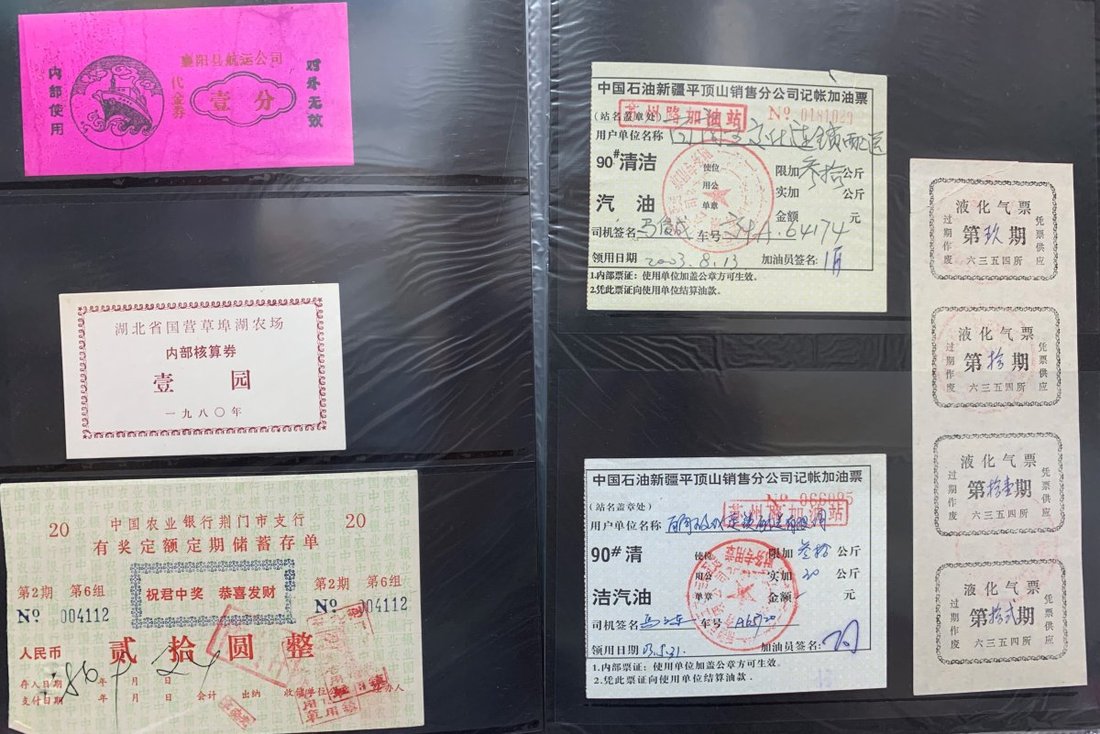 襄阳县航运公司
内部使用
代金券
壹分
对外无效
湖北省国营草埠湖农场
内部核算券
壹 园
一九八〇年
20
中国农业银行荆门市支行
20
有奖定额定期储蓄存单
第2期 第6组
祝君中奖 恭喜发财
第2期 第6组
№ 004112
№ 004112
人民币
贰拾圆整
存入日期 年 月 日
支付日期 年 月 日 会计 出纳
中国石油新疆平顶山销售分公司记帐加油票
(站名盖章处)
苏州路加油站
№ 0181029
用户单位名称
90#清洁
汽油
使位
用公
单章
限加 叁拾 公斤
实加 公斤
金额 元
司机签名 车号 34A.64174
领用日期 2003.8.13 加油员签名:
1.内部票证:使用单位加盖公章方可生效。
2.凭此票证向使用单位结算油款。
中国石油新疆平顶山销售分公司记帐加油票
№ 066095
(站名盖章处)
苏州路加油站
用户单位名称
90#清
洁汽油
使位
用公
单章
限加 叁拾 公斤
实加 20 公斤
金额 元
司机签名 车号
领用日期 03.5.31 加油员签名:
1.内部票证:使用单位加盖公章方可生效。
2.凭此票证向使用单位结算油款。
液化气票
过期作废
第玖期
凭票供应
六三五四所
液化气票
过期作废
第拾期
凭票供应
六三五四所
液化气票
过期作废
第拾壹期
凭票供应
六三五四所
液化气票
过期作废
第拾弍期
凭票供应
六三五四所